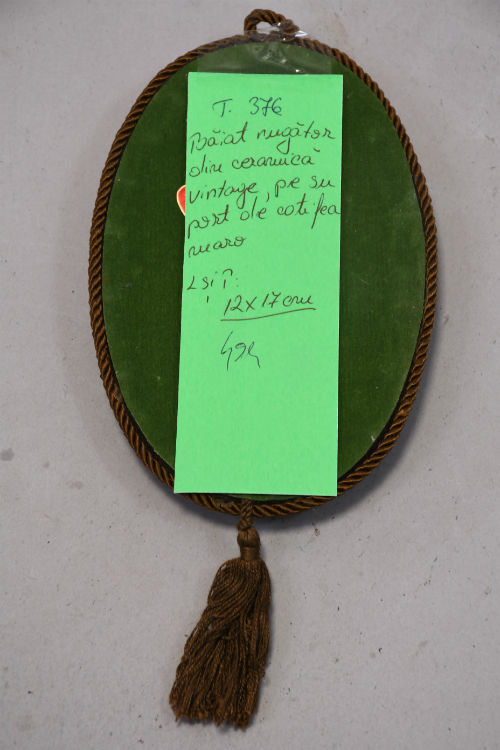 T. 376
Băiat rugător
din ceramică
vintage, pe su
port de catifea
maro
L și Î:
12x17cm